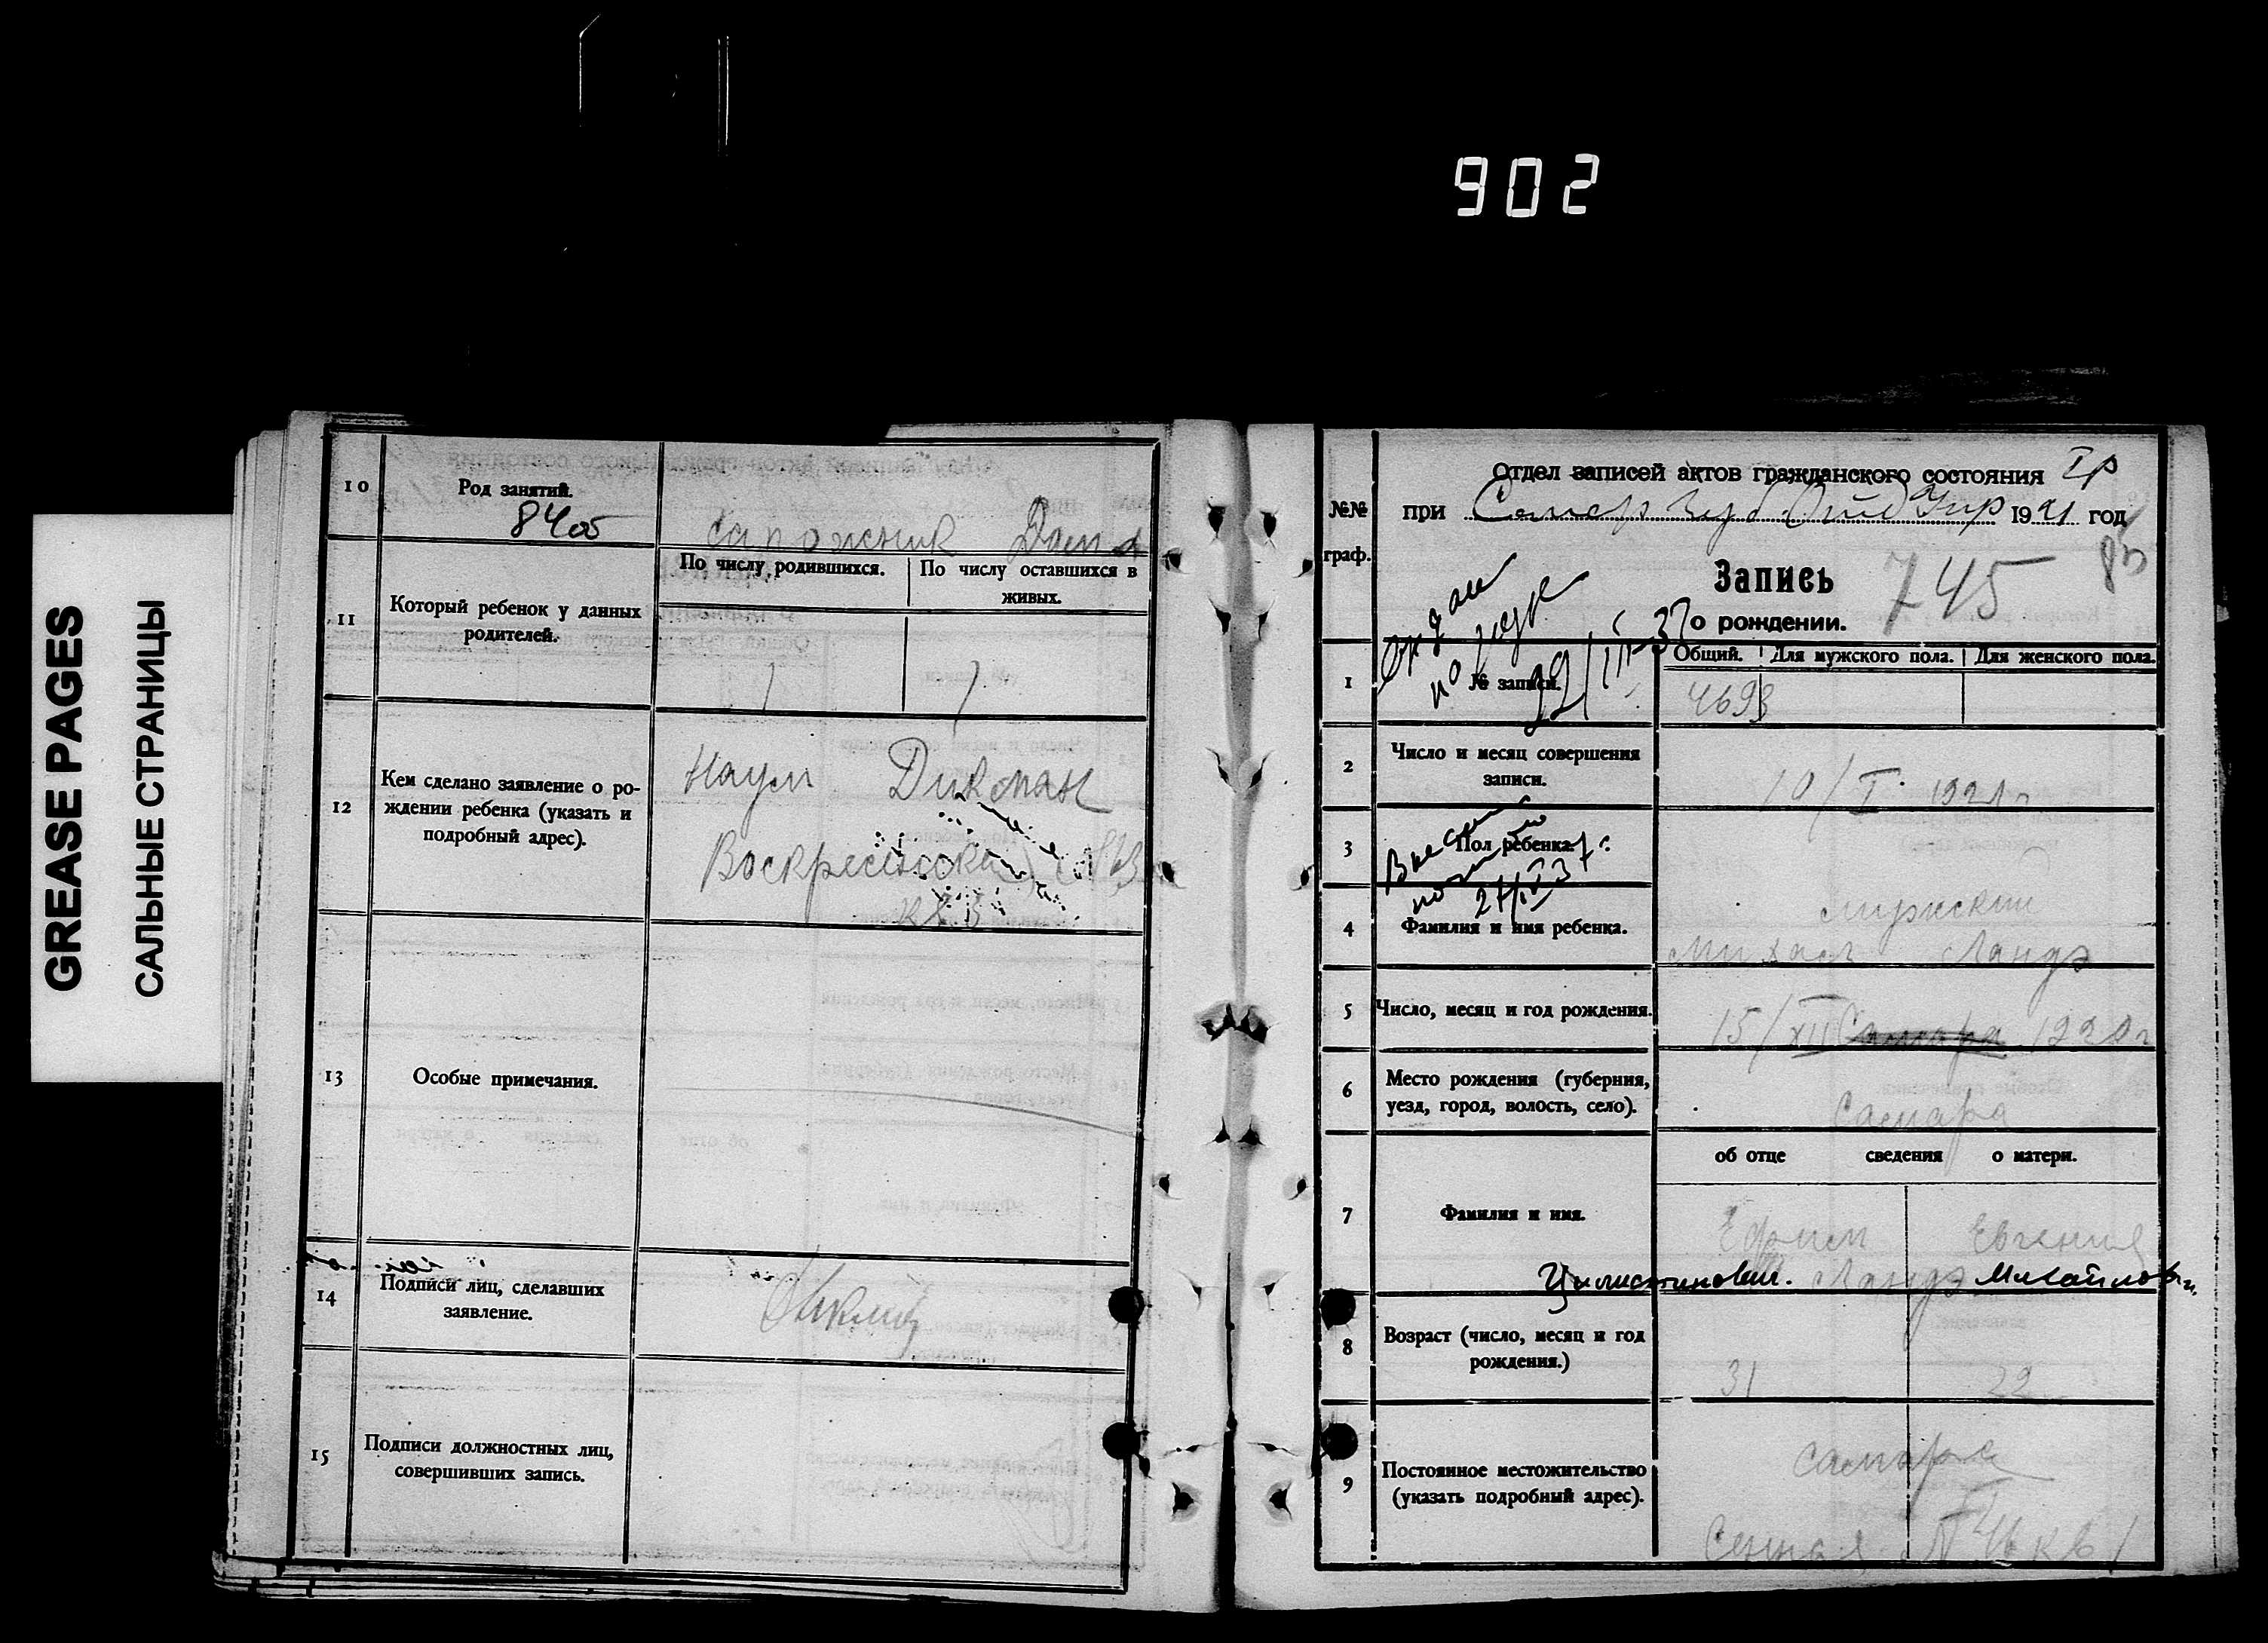 902
GREASE PAGES
САЛЬНЫЕ СТРАНИЦЫ
10
Род занятий.
сапожник Дома
11
Который ребенок у данных
родителей.
По числу родившихся.
По числу оставшихся в
живых.
1
1
12
Кем сделано заявление о ро-
ждении ребенка (указать и
подробный адрес).
Наум Дикман
13
Особые примечания.
14
Подписи лиц, сделавших
заявление.
15
Подписи должностных лиц,
совершивших запись.
№№
граф.
Отдел записей актов гражданского состояния
при 1921 год
Запись
745
85
о рождении.
Общий. Для мужского пола. Для женского пола.
1
№ записи.
4693
2
Число и месяц совершения
записи.
10/I 1921 г
3
Пол ребенка.
мужский
4
Фамилия и имя ребенка.
Михаил Ландэ
5
Число, месяц и год рождения.
15/XII Самара 1920 г
6
Место рождения (губерния,
уезд, город, волость, село).
Самара
об отце сведения о матери.
7
Фамилия и имя.
Ефим Евгения
Ландэ
8
Возраст (число, месяц и год
рождения.)
31
22
9
Постоянное местожительство
(указать подробный адрес).
Самара